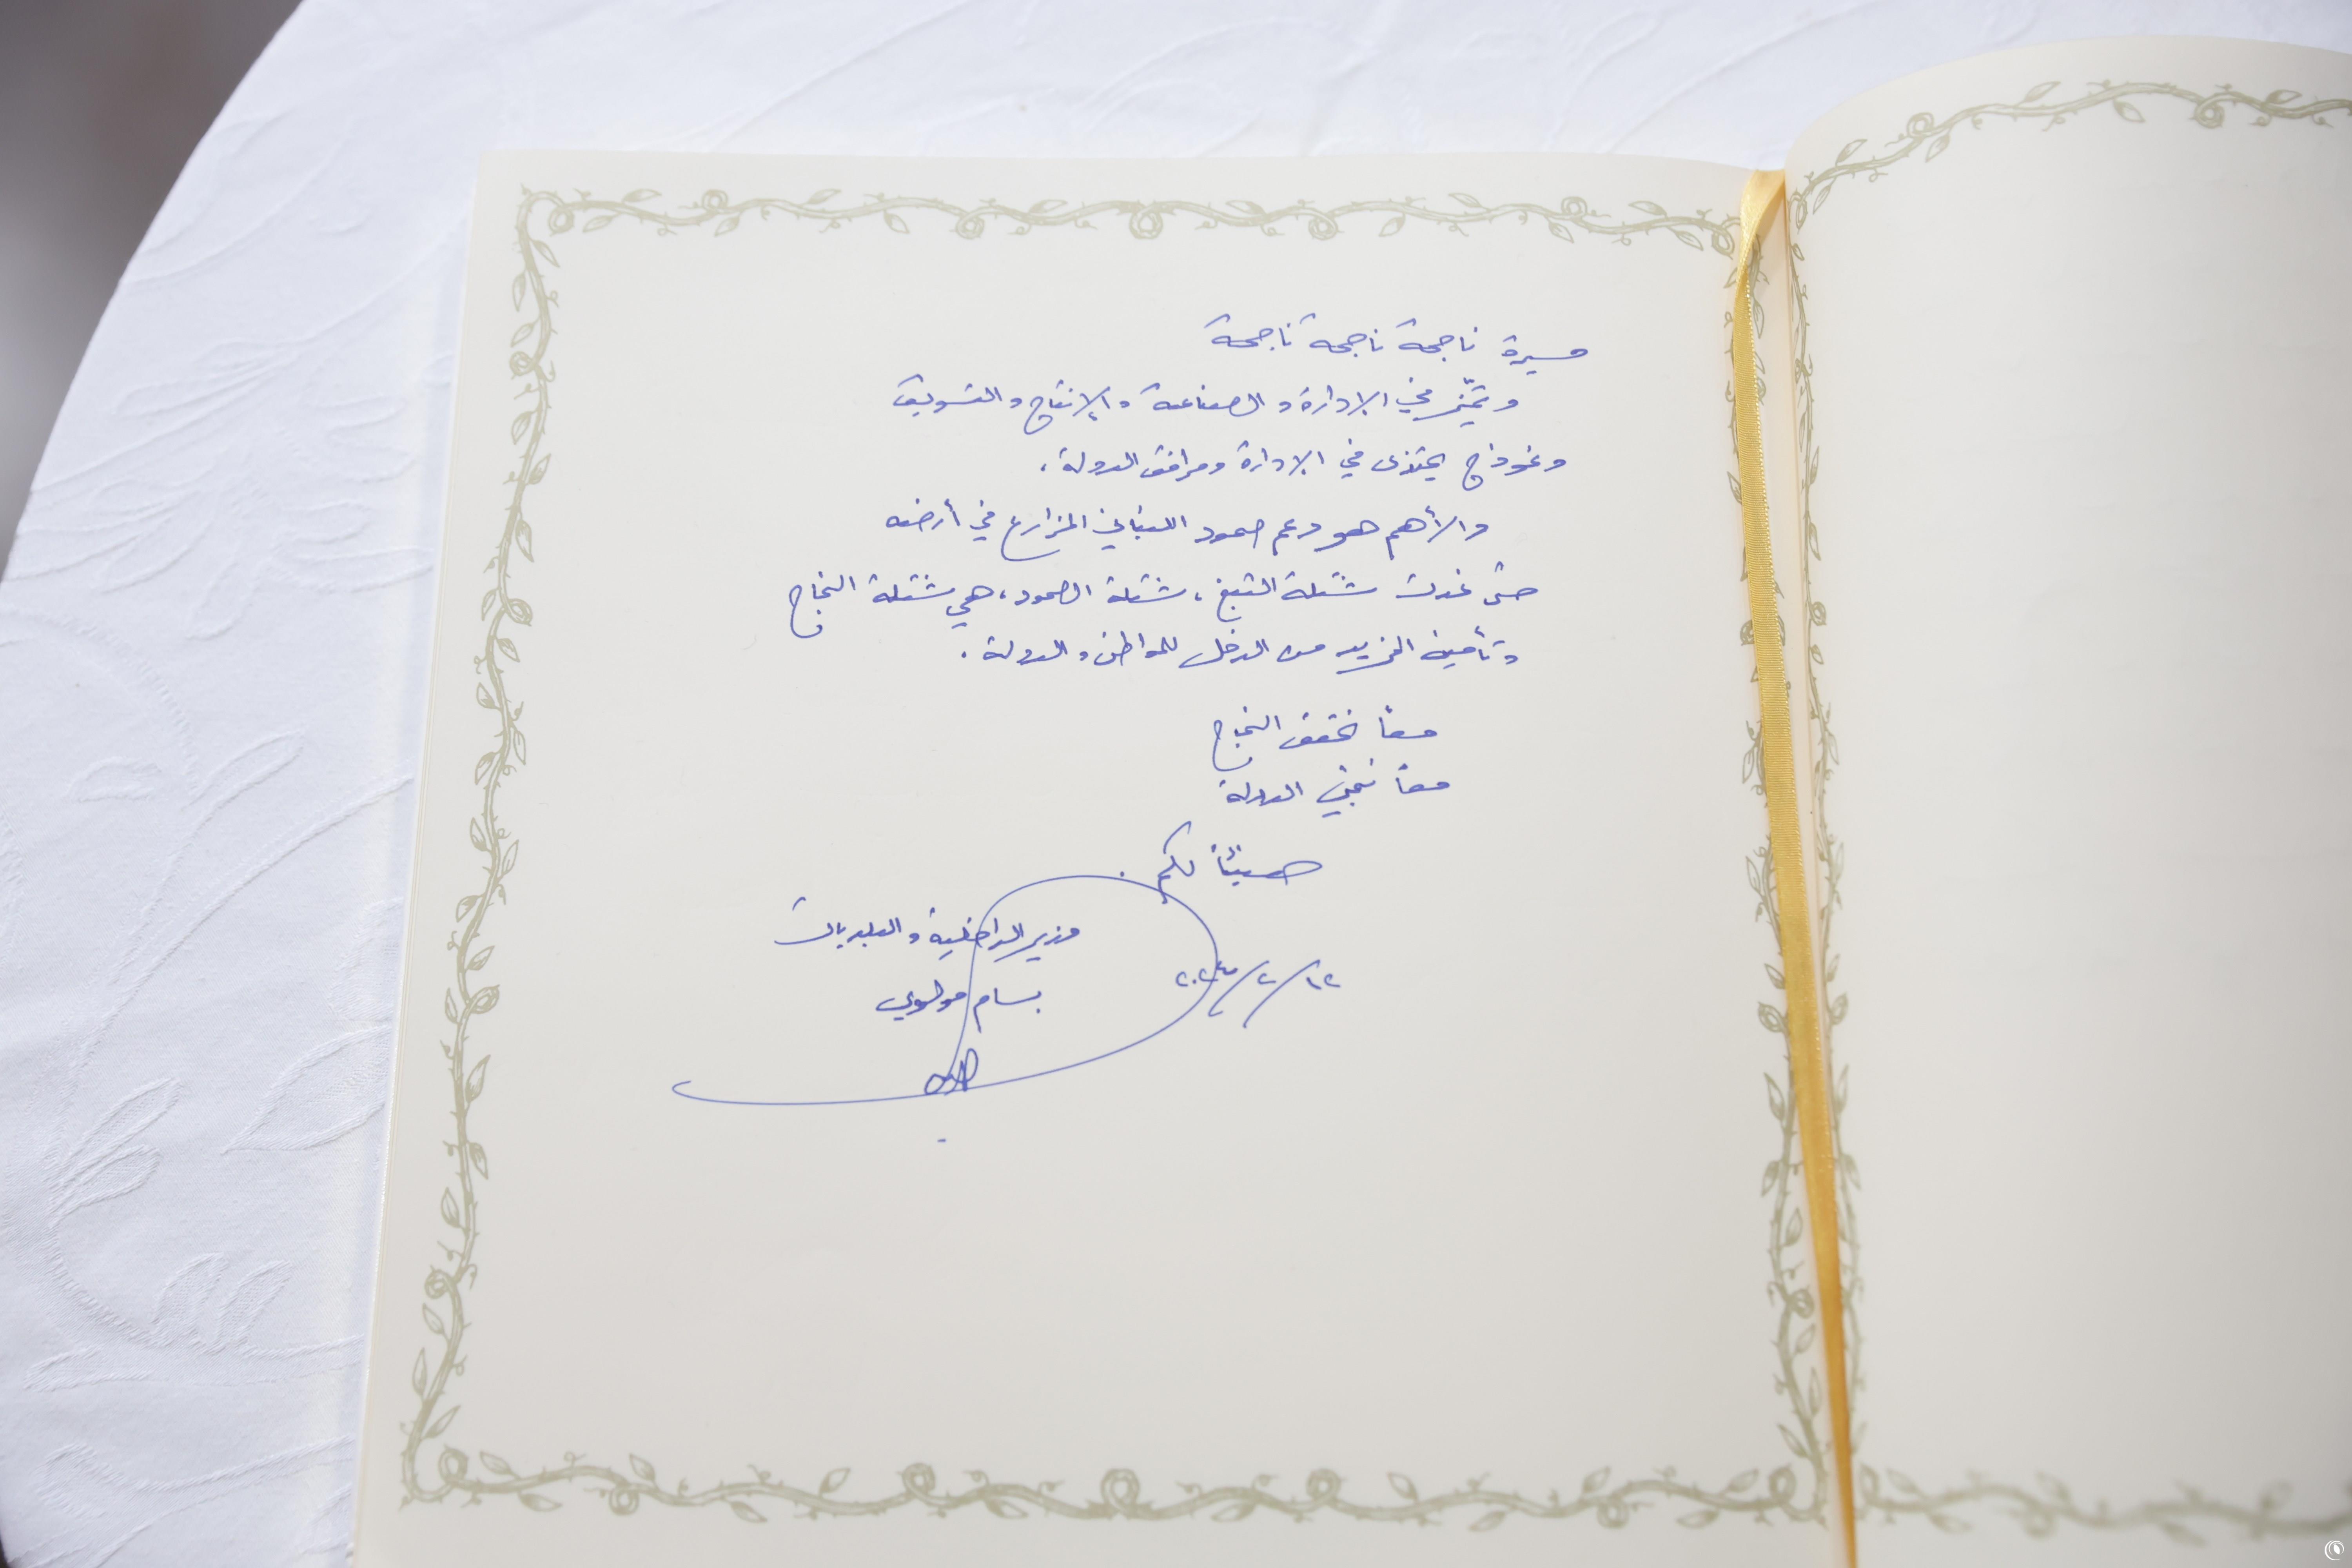 مسيرة ناجحة ناجحة ناجحة
وتميّز في الإدارة والصناعة والإنتاج والتسويق
ونموذج يحتذى في الإدارة ومرافق الدولة،
والأهم هو دعم صمود اللبناني المزارع في أرضه
حتى غدت شتلة التبغ، شتلة الصمود، هي شتلة النجاح
وتأمين المزيد من الدخل للمواطن والدولة.
معاً نحقق النجاح
معاً نبني الدولة
هنيئاً لكم.
وزير الداخلية والبلديات
بسام مولوي
١٢/٢/٢٠٢٤